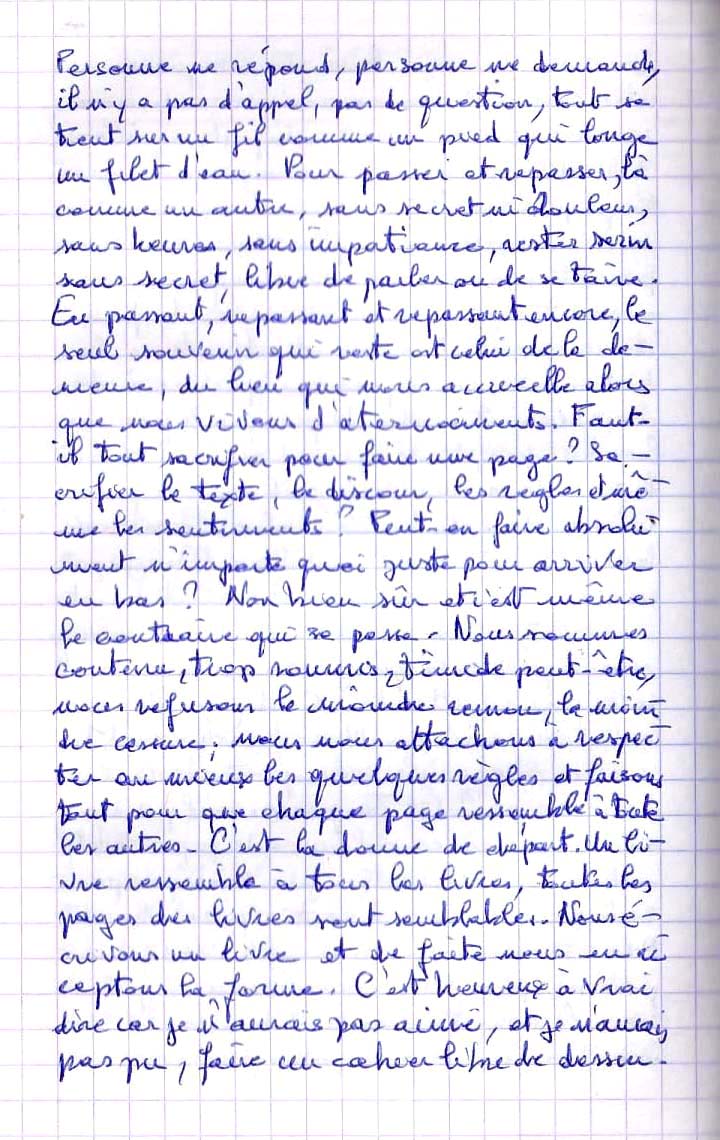 Personne ne répond, personne ne demande,
il n'y a pas d'appel, pas de question, tout se
tient sur un fil comme un pied qui longe
un filet d'eau. Pour passer et repasser, là
comme un autre, sans secret ni douleur,
sans heures, sans impatience, rester serin
sans secret, libre de parler ou de se taire.
En passant, repassant et repassant encore, le
seul souvenir qui reste est celui de la de-
meure, du lieu qui nous accueille alors
que nous vivons d'atermoiements. Faut-
il tout sacrifier pour faire une page? Sa-
crifier le texte, le discour, les règles et mê-
me les sentiments? Peut-on faire absolu-
ment n'importe quoi juste pour arriver
en bas? Non bien sûr et c'est même
le contraire qui se passe. Nous sommes
contenu, trop soumis, timide peut-être,
nous refusons le moindre remou, la moin-
dre cesure; nous nous attachons à respec-
ter au mieux les quelques règles et faisons
tout pour que chaque page ressemble à toute
les autres. C'est la donne de départ. Un li-
vre ressemble à tous les livres, toutes les
pages des livres sont semblables. Nous é-
crivons un livre et de faite nous en
ceptons la forme. C'est heureux à vrai
dire car je n'aurais pas aimé, et je n'aurais
pas pu, faire un cahier libre de dessin.